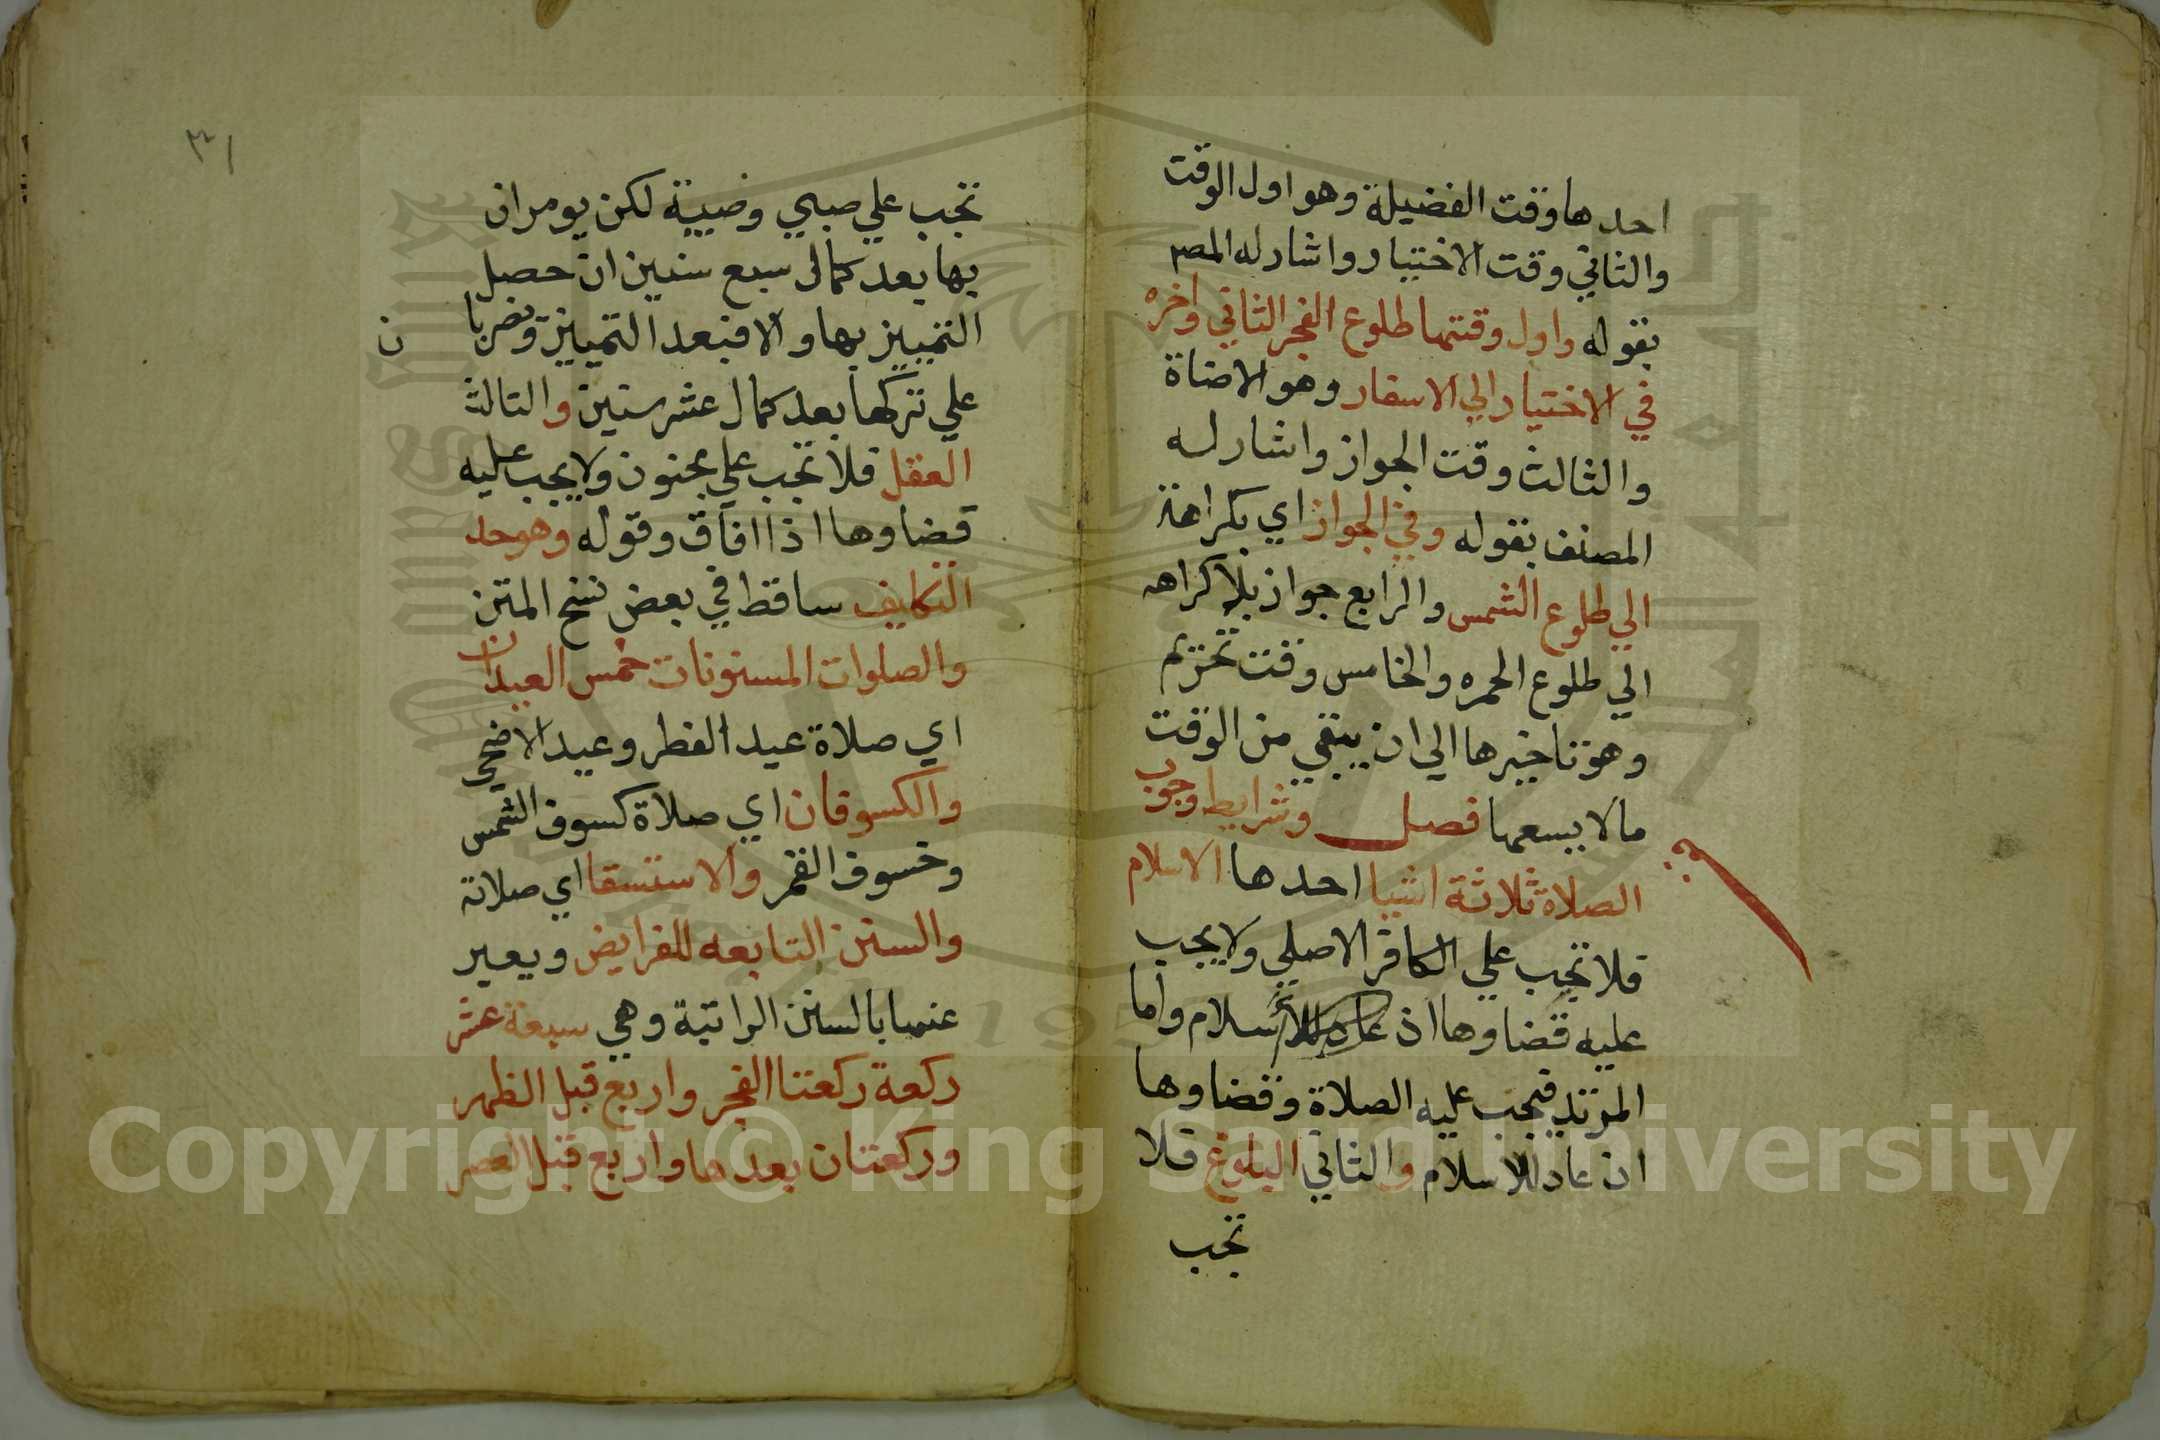 احدها وقت الفضيلة وهو اول الوقت
والثاني وقت الاختيار واشار له المصم
بقوله واول وقتها طلوع الفجر الثاني واخره
في الاختيار الي الاسفار وهو الاضاة
والثالث وقت الجواز واشار له
المصنف بقوله وفي الجواز اي بكراهة
الي طلوع الشمس والرابع جواز بلا كراهه
الي طلوع الحمره والخامس وقت تحريم
وهو تاخيرها الي ان يبقي من الوقت
ما لا يسعها فصل وشرايط وجوب
الصلاة ثلاثة اشيا احدها الاسلام
فلا تجب علي الكافر الاصلي ولا يجب
عليه قضاوها اذ سلام واما
المرتد فيجب عليه الصلاة وقضاوها
ان عاد للاسلام والثاني البلوغ فلا
تجب
٣١
تجب علي صبي وصبية لكن يومران
بها بعد كمال سبع سنين ان حصل
التمييز بها والا فبعد التمييز ويضربا
ن
علي تركها بعد كمال عشر سنين والثالث
العقل فلا تجب علي مجنون ولا يجب عليه
قضاوها اذا افاق وقوله وهو حد
التكليف ساقط في بعض نسخ المتن
والصلوات المسنونات خمس العيدان
اي صلاة عيد الفطر وعيد الاضحي
والكسوفان اي صلاة كسوف الشمس
وخسوف القمر والاستسقا اي صلاته
والسنن التابعه للفرايض ويعبر
عنها بالسنن الراتبة وهي سبعة عشر
ركعة ركعتا الفجر واربع قبل الظهر
وركعتان بعدها واربع قبل العصر
Copyright © King Saud University